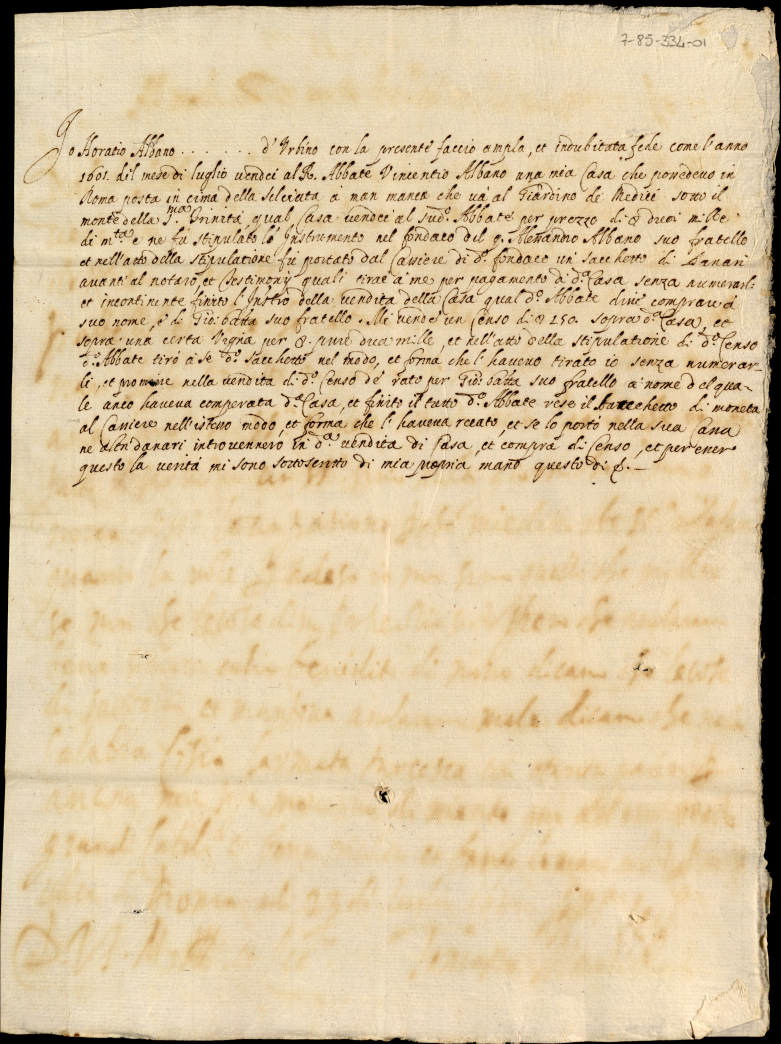 7-85-334-01
Io Horatio Albano . . . . . . . d'Urbino con la presente faccio ampla, et indubitata fede come l'anno
1601. del mese di luglio vendei al R. Abbate Vincentio Albano una mia Casa che possedevo in
Roma posta in cima della Selciata a man manca che và al Giardino de Medici sotto il
monte della S.ma Trinità qual Casa vendei al sud.o Abbate per prezzo di dieci mille
di m.ta e ne fù stipulato lo Instrumento nel fondaco del q. Alessandro Albano suo fratello
et nell'atto della stipulatione fù portato dal Cassiere di d.o fondaco un sacchetto di danari
avanti al notaro, et Testimonij quali tirai a me per pagamento di d.a Casa senza numerarli
et incontinente finito l'Instro della vendita della Casa qual d.o Abbate disse comprare à
suo nome, di Gio: batta suo fratello. Mi vendè un Censo di 250. sopra d.a Casa, et
sopra una certa Vigna per pure due mille, et nell'atto della stipulatione di d.o Censo
d.o Abbate tirò à se d.o sacchetto nel modo, et forma che l'havevo tirato io senza numerar-
li, et promise nella vendita di d.o Censo de rato per Gio: batta suo fratello à nome del qua-
le anco haveva comperata d.a Casa, et finito il tutto d.o Abbate rese il sacchetto di moneta
al Cassiere nell'istesso modo, et forma che l'haveva recato, et se lo portò nella sua Cassa
ne altri danari intervennero in d.a vendita di Casa, et compra di Censo, et per esser
questo la verità mi sono sottoscritto di mia propria mano questo di